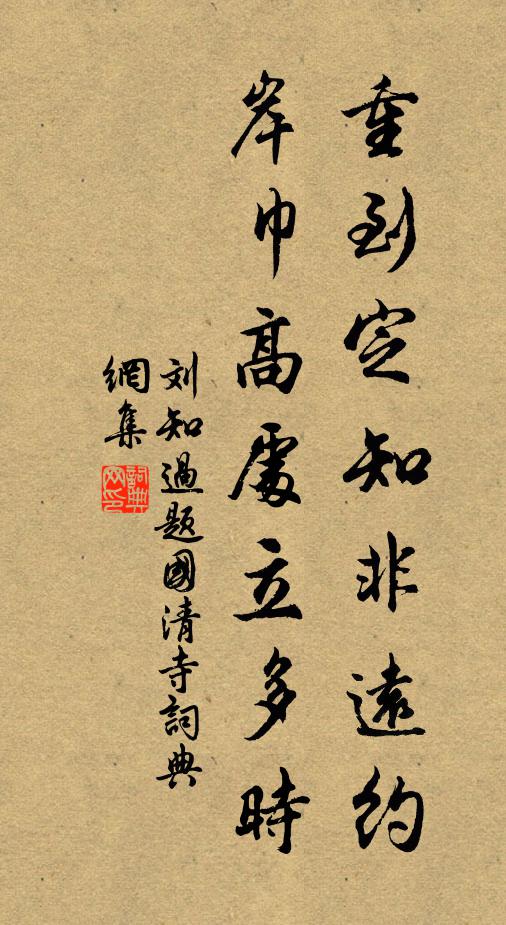 重到定知非遠約
岸巾高處立多時
刘知過题國清寺詞典
網集
詞典網印